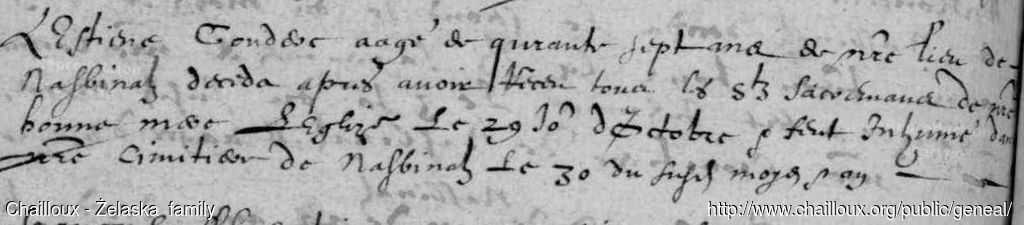 Estiene Gondere aagé de qurante sept ans de nre lieu de
Nasbinalz deceda apres avoir Receu tous les Stz Sacremans de nre
bonne mere L'Eglize Le 29 Jor d'Octobre & feut Inhumé dans
nre Cimitiere de Nasbinalz Le 30 du susd moys & an
Chailloux - Żelaska family
http://www.chailloux.org/public/geneal/